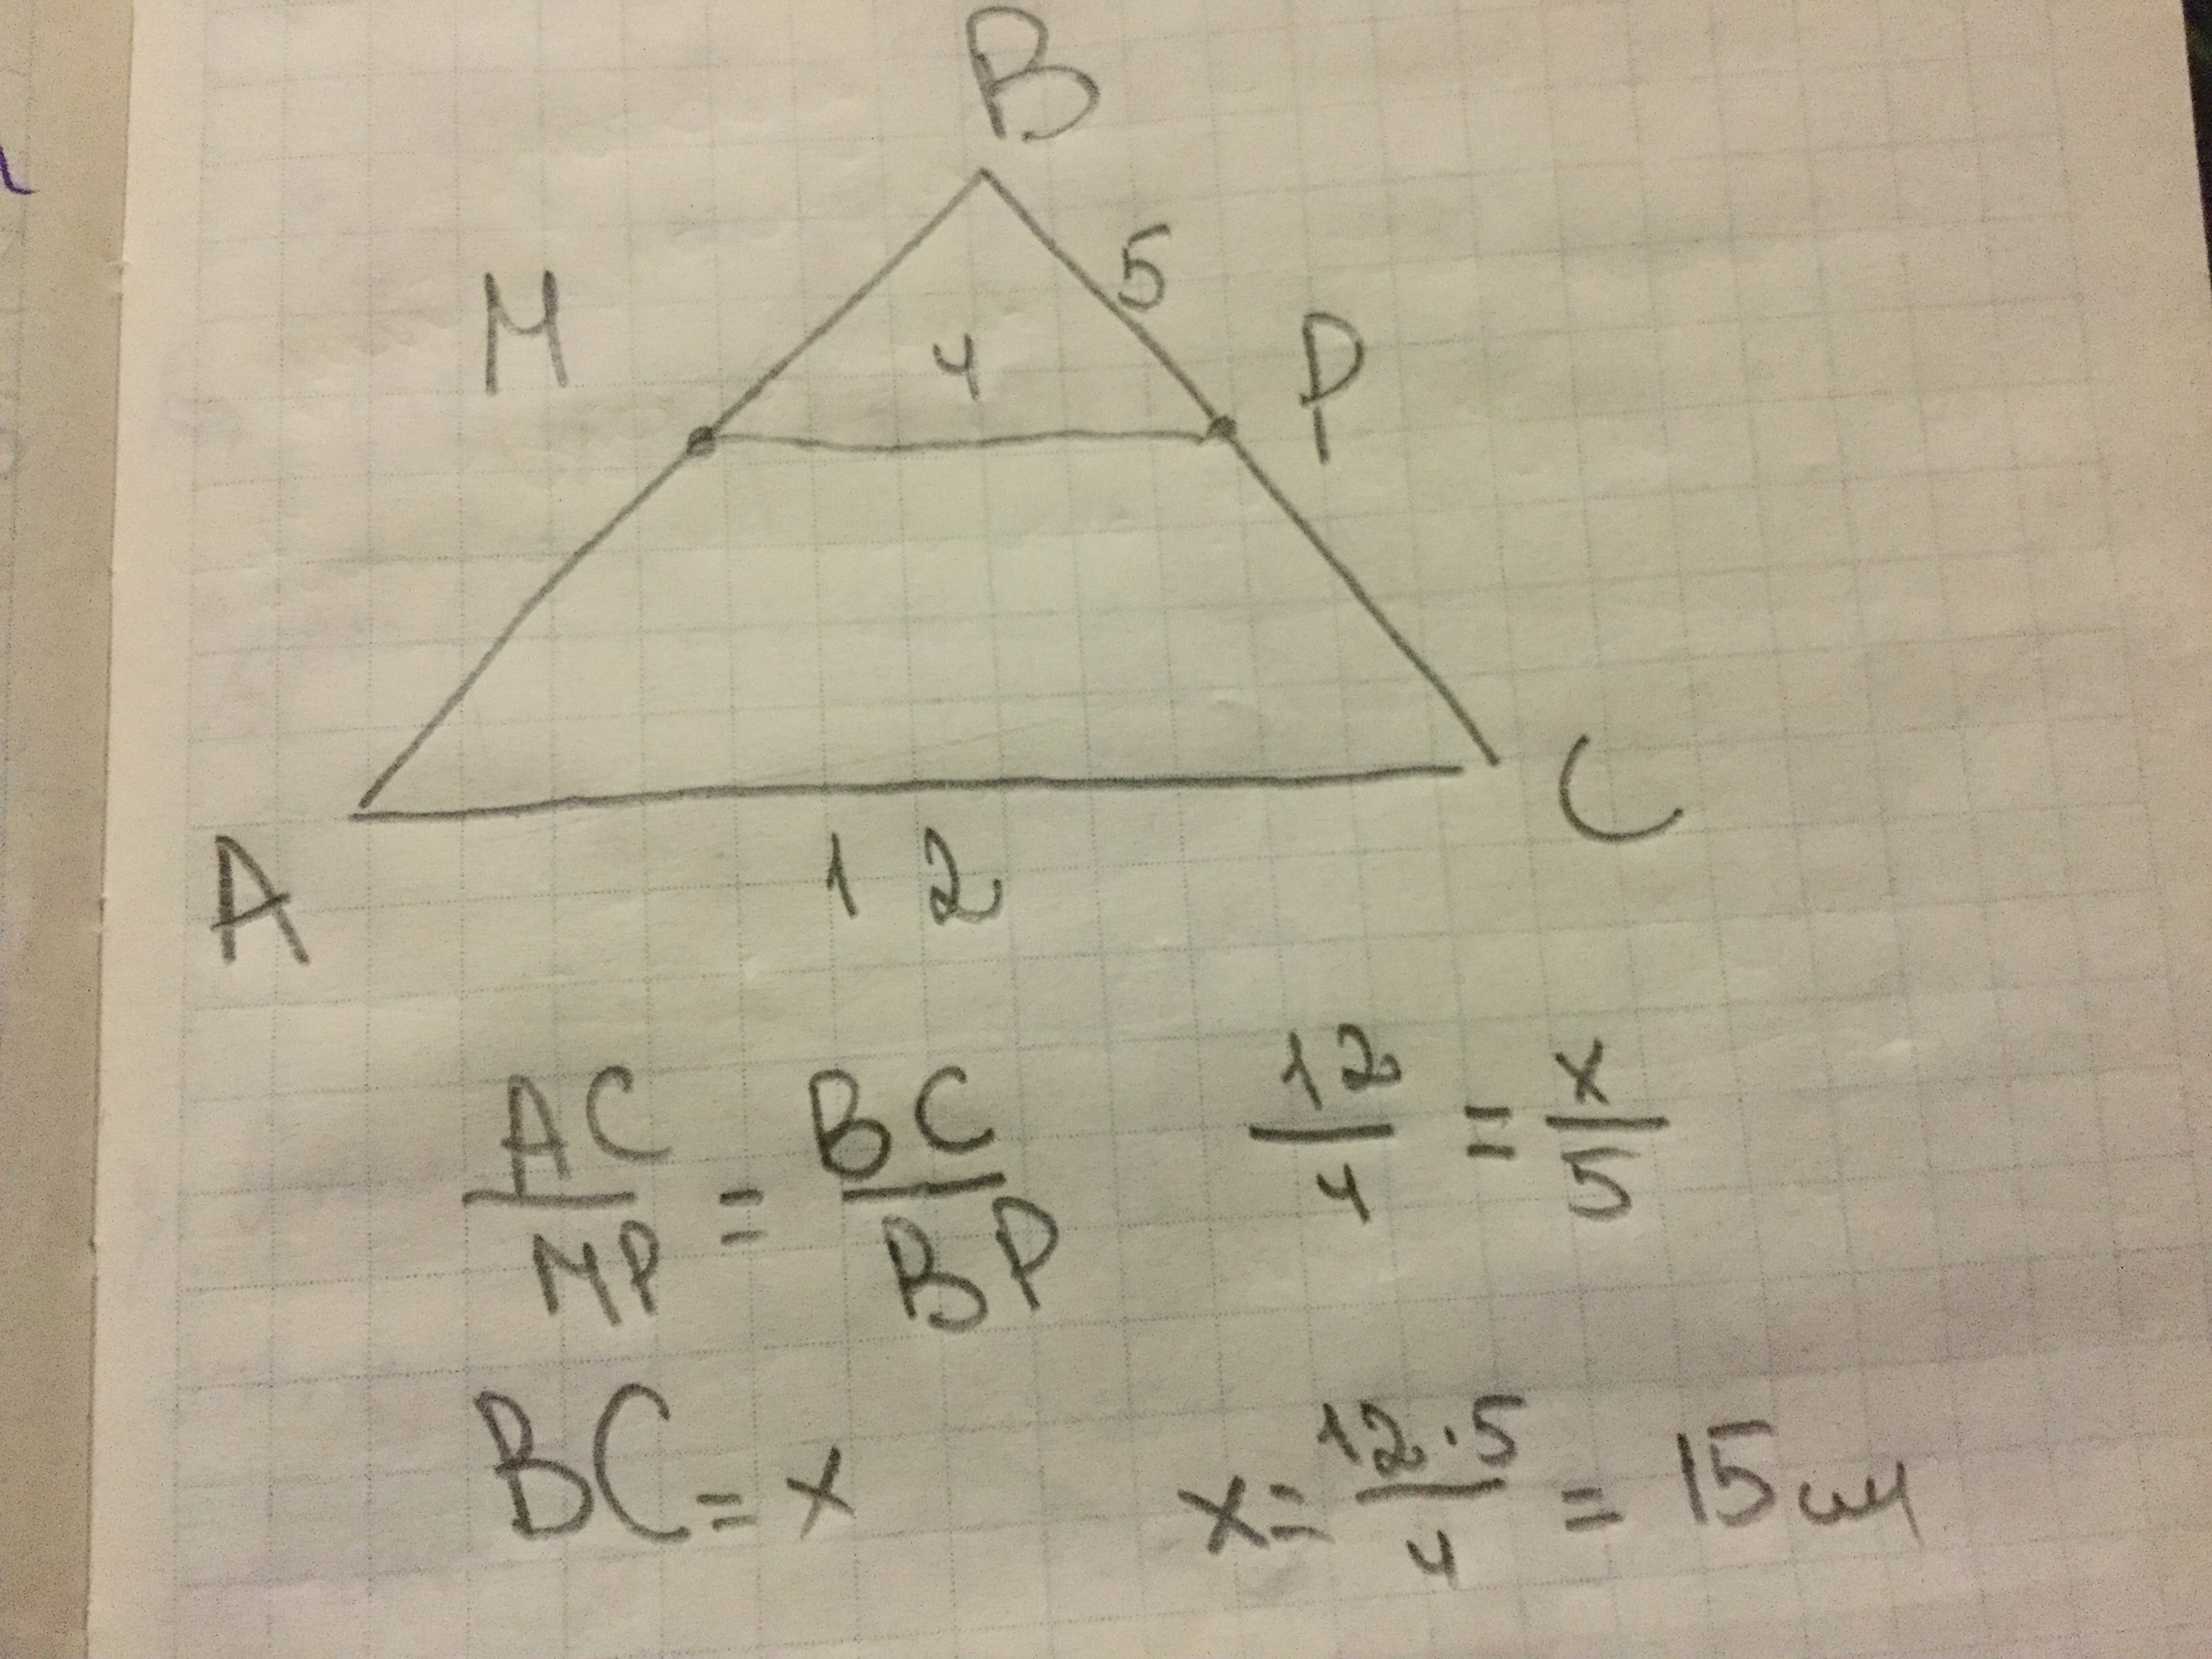 B
M
5
4
P
A
12
C
AC/MP = BC/BP
12/4 = x/5
BC = x
x = 12·5/4 = 15 см